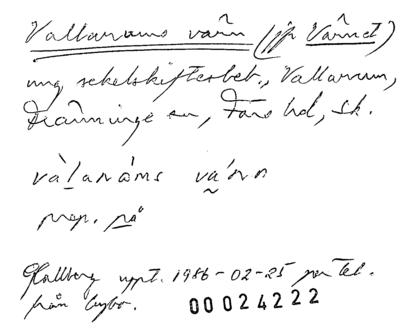 Vallarums värn (jfr Värnet)
ung sekelskiftesbet., Vallarum,
Tranninge sn, Färs hd, Sk.
và̀lanàms vá́rn
prep. på
Hallberg uppt. 1986-02-25 per tel.
från
00024222